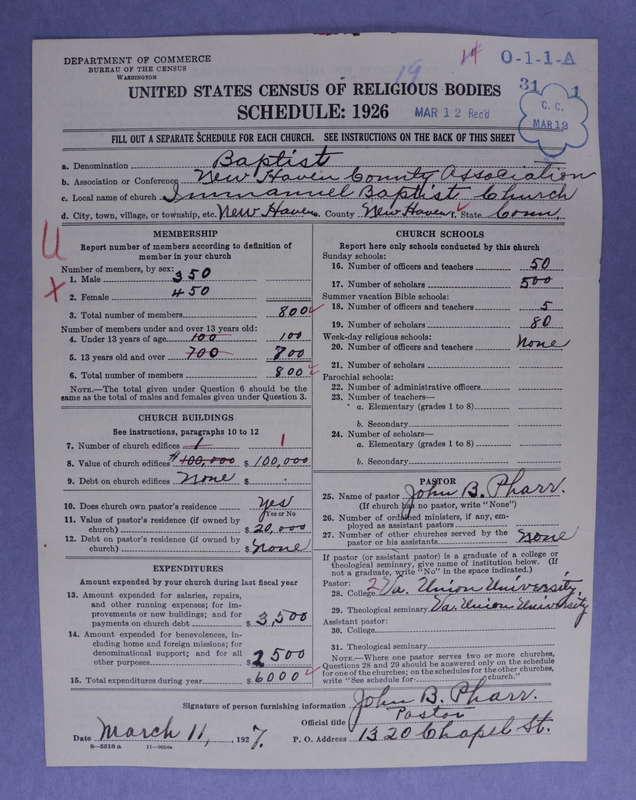 14 O-1-1-A
DEPARTMENT OF COMMERCE
BUREAU OF THE CENSUS
WASHINGTON
19
31 1
UNITED STATES CENSUS OF RELIGIOUS BODIES
SCHEDULE: 1926
MAR 12 Rec'd
C. C.
MAR 12
FILL OUT A SEPARATE SCHEDULE FOR EACH CHURCH. SEE INSTRUCTIONS ON THE BACK OF THIS SHEET
a. Denomination Baptist
b. Association or Conference New Haven County Association
c. Local name of church Immanuel Baptist Church
d. City, town, village, or township, etc. New Haven County New Haven State Conn.
U
X
MEMBERSHIP
Report number of members according to definition of
member in your church
Number of members, by sex:
1. Male 350
2. Female 450
3. Total number of members 800
Number of members under and over 13 years old:
4. Under 13 years of age 100 100
5. 13 years old and over 700 700
6. Total number of members 800
NOTE.—The total given under Question 6 should be the
same as the total of males and females given under Question 3.
CHURCH BUILDINGS
See instructions, paragraphs 10 to 12
7. Number of church edifices 1 1
8. Value of church edifices $100,000 $ 100,000
9. Debt on church edifices None $
10. Does church own pastor's residence Yes
Yes or No
11. Value of pastor's residence (if owned by
church) $ 20,000
12. Debt on pastor's residence (if owned by
church) $ none
EXPENDITURES
Amount expended by your church during last fiscal year
13. Amount expended for salaries, repairs,
and other running expenses; for im-
provements or new buildings; and for
payments on church debt $ 3,500
14. Amount expended for benevolences, in-
cluding home and foreign missions; for
denominational support; and for all
other purposes $ 2500
15. Total expenditures during year $ 6000
CHURCH SCHOOLS
Report here only schools conducted by this church
Sunday schools:
16. Number of officers and teachers 50
17. Number of scholars 500
Summer vacation Bible schools:
18. Number of officers and teachers 5
19. Number of scholars 80
Week-day religious schools:
20. Number of officers and teachers None
21. Number of scholars
Parochial schools:
22. Number of administrative officers
23. Number of teachers—
a. Elementary (grades 1 to 8)
b. Secondary
24. Number of scholars—
a. Elementary (grades 1 to 8)
b. Secondary
PASTOR
25. Name of pastor John B. Pharr.
(If church has no pastor, write "None")
26. Number of ordained ministers, if any, em-
ployed as assistant pastors
27. Number of other churches served by the
pastor or his assistants None
If pastor (or assistant pastor) is a graduate of a college or
theological seminary, give name of institution below. (If
not a graduate, write "No" in the space indicated.)
Pastor:
28. College 2 Va. Union University,
29. Theological seminary Va. Union University
Assistant pastor:
30. College
31. Theological seminary
NOTE.—Where one pastor serves two or more churches,
Questions 28 and 29 should be answered only on the schedule
for one of the churches; on the schedules for the other churches,
write "See schedule for church."
Signature of person furnishing information John B. Pharr.
Official title Pastor
Date March 11, 1927. P. O. Address 1320 Chapel St.
8-5318 a